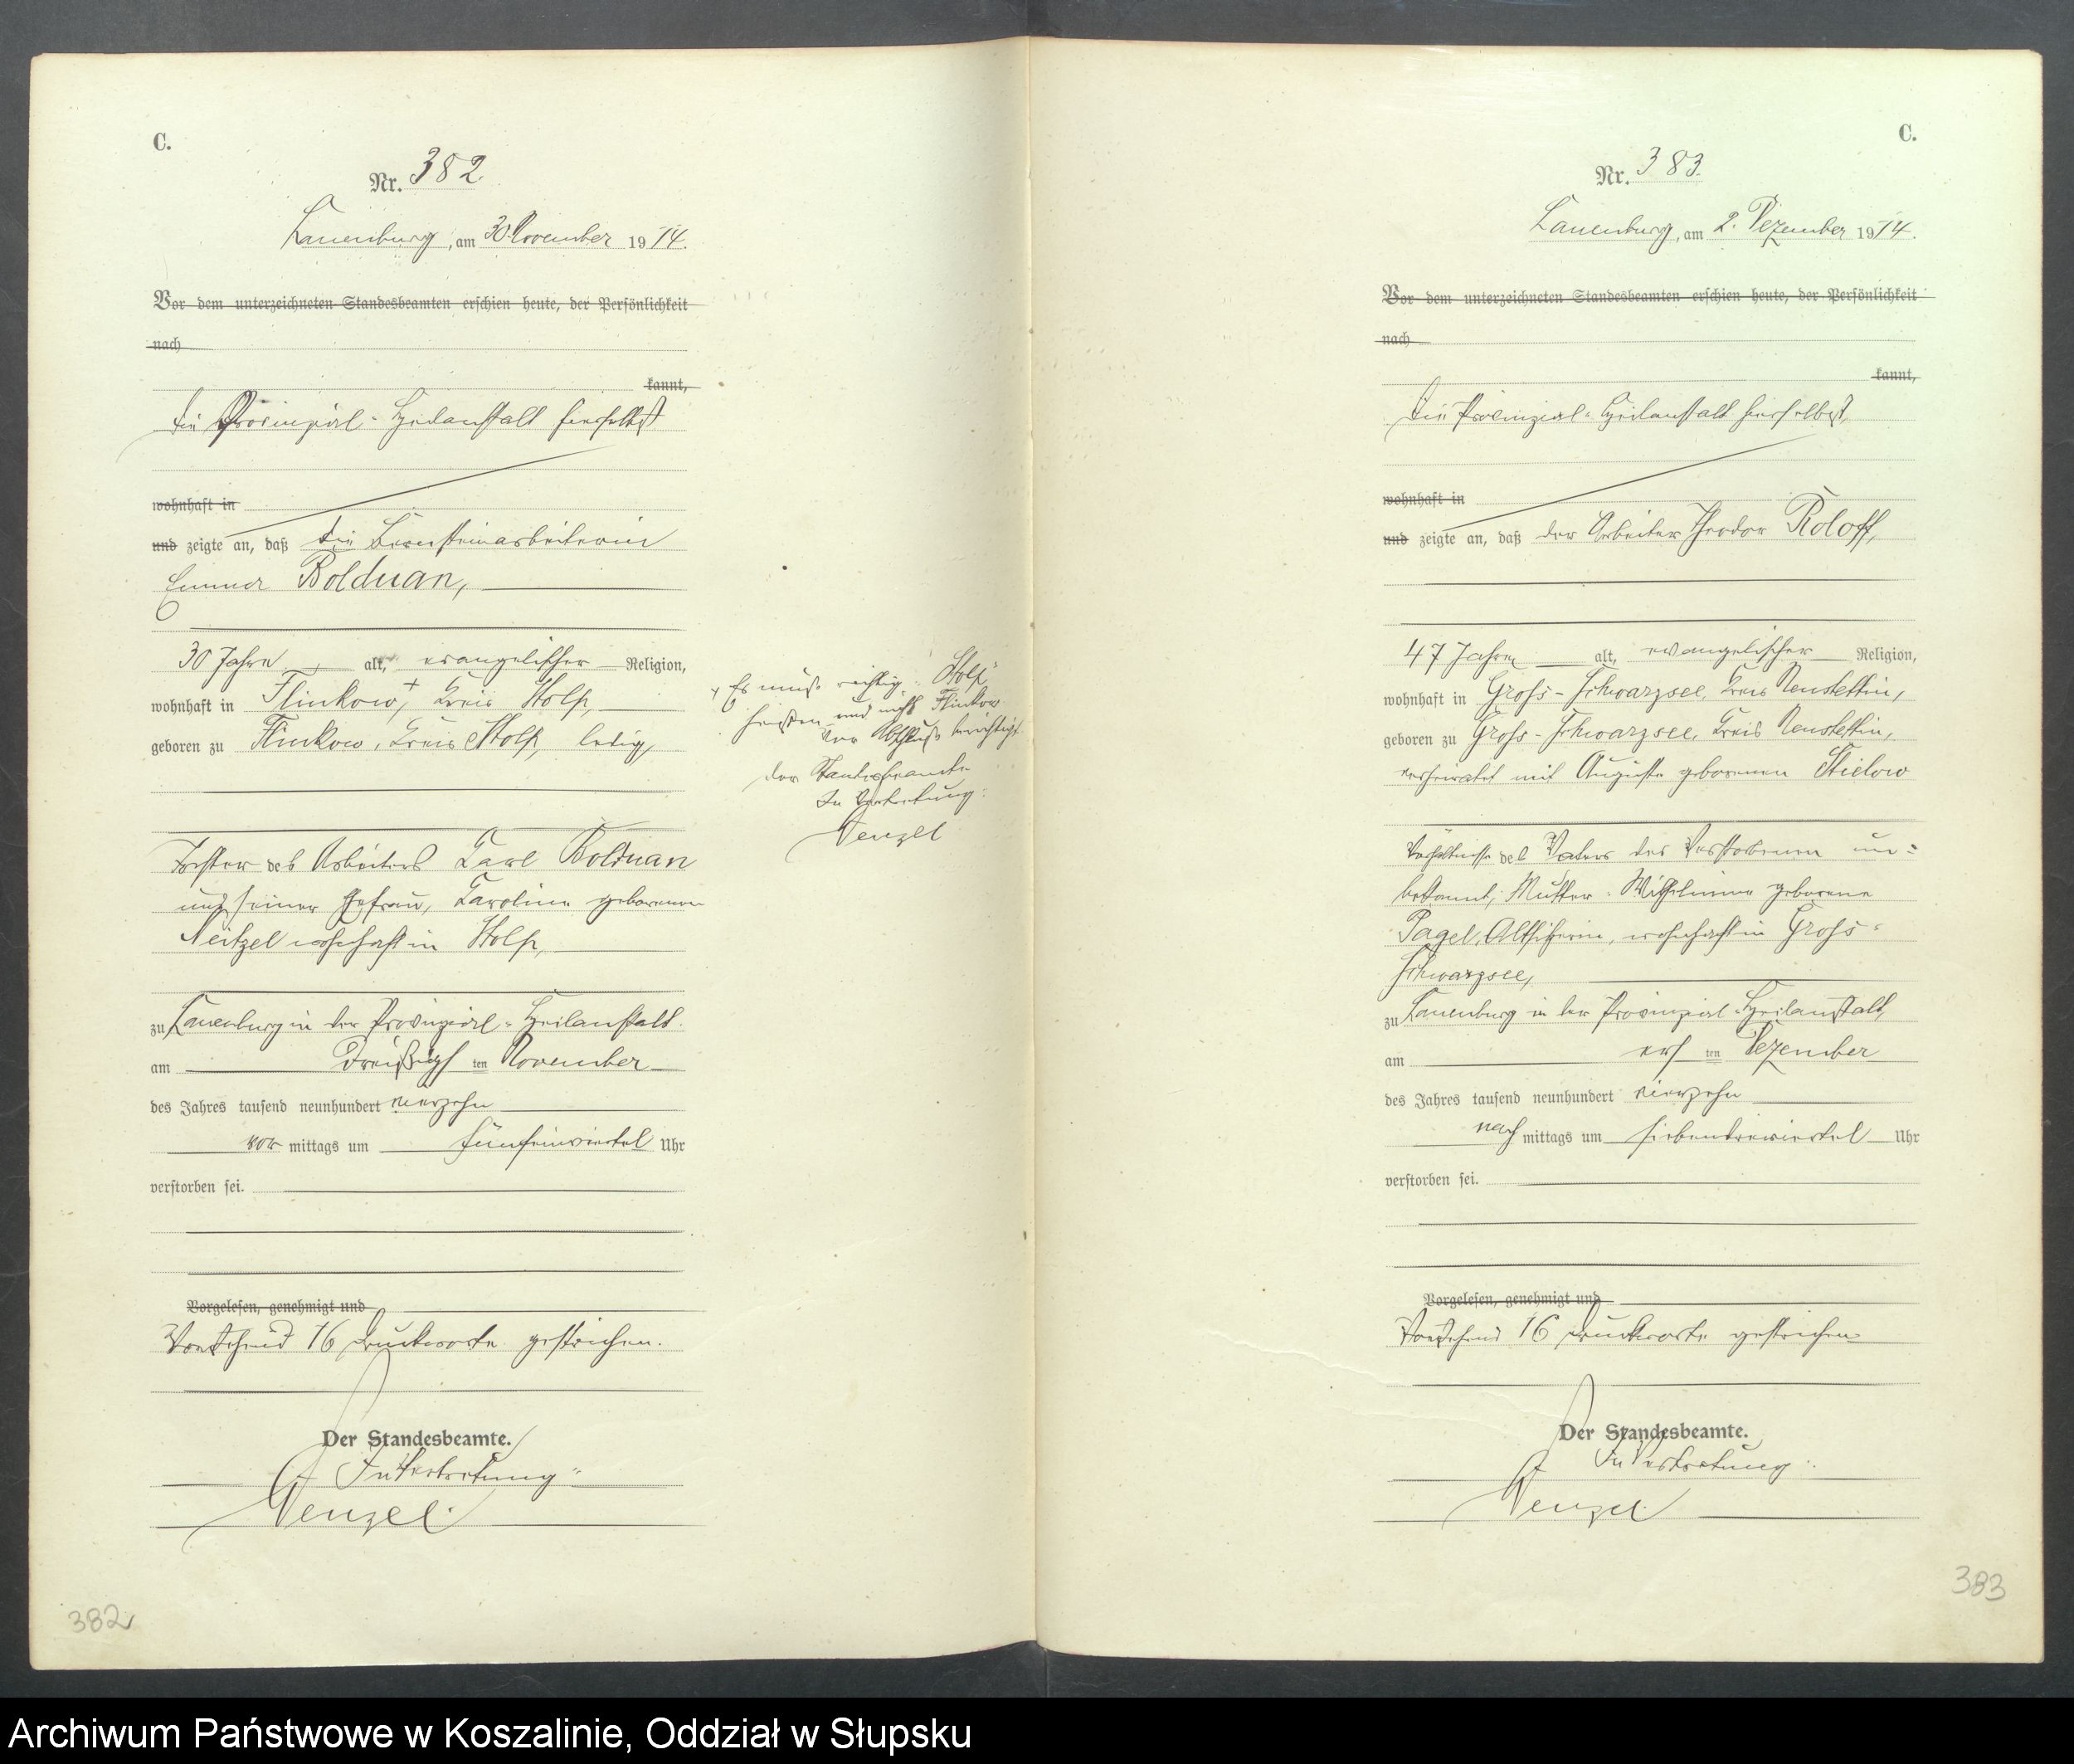 C.
Nr. 382
Lauenburg, am 30. November 1914.
Vor dem unterzeichneten Standesbeamten erschien heute, der Persönlichkeit
nach
kannt,
die Provinzial-Heilanstalt hierselbst
wohnhaft in
und zeigte an, daß die Bernsteinarbeiterin
Emma Bolduan,
30 Jahre alt, evangelischer Religion,
wohnhaft in Flinkow, + Kreis Stolp,
geboren zu Flinkow, Kreis Stolp, ledig,
Tochter des Arbeiters Carl Bolduan
und seiner Ehefrau, Caroline geborenen
Neitzel wohnhaft in Stolp,
zu Lauenburg in der Provinzial-Heilanstalt.
am Dreißigsten November
des Jahres tausend neunhundert vierzehn
vor mittags um fünfeinviertel Uhr
verstorben sei.
Vorgelesen, genehmigt und
Vorstehend 16 Druckworte gestrichen.
Der Standesbeamte.
In Vertretung:
Wenzel.
382
+ Es muß richtig: "Stolp"
heißen und nicht Flinkow.
Vor Abschluß berichtigt.
Der Standesbeamte
In Vertretung:
Wenzel
C.
Nr. 383.
Lauenburg, am 2. Dezember 1914.
Vor dem unterzeichneten Standesbeamten erschien heute, der Persönlichkeit
nach
kannt,
die Provinzial-Heilanstalt hierselbst
wohnhaft in
und zeigte an, daß der Arbeiter Theodor Roloff,
47 Jahre alt, evangelischer Religion,
wohnhaft in Groß-Schwarzsee, Kreis Neustettin,
geboren zu Groß-Schwarzsee, Kreis Neustettin,
verheiratet mit Auguste geborenen Stielow
Verhältnisse des Vaters des Verstorbenen un-
bekannt; Mutter: Wilhelmine geborene
Pagel, Altsitzerin, wohnhaft in Groß-
Schwarzsee,
zu Lauenburg in der Provinzial-Heilanstalt,
am ersten Dezember
des Jahres tausend neunhundert vierzehn
nach mittags um siebendreiviertel Uhr
verstorben sei.
Vorgelesen, genehmigt und
Vorstehend 16 Druckworte gestrichen
Der Standesbeamte.
In Vertretung:
Wenzel
383
Archiwum Państwowe w Koszalinie, Oddział w Słupsku